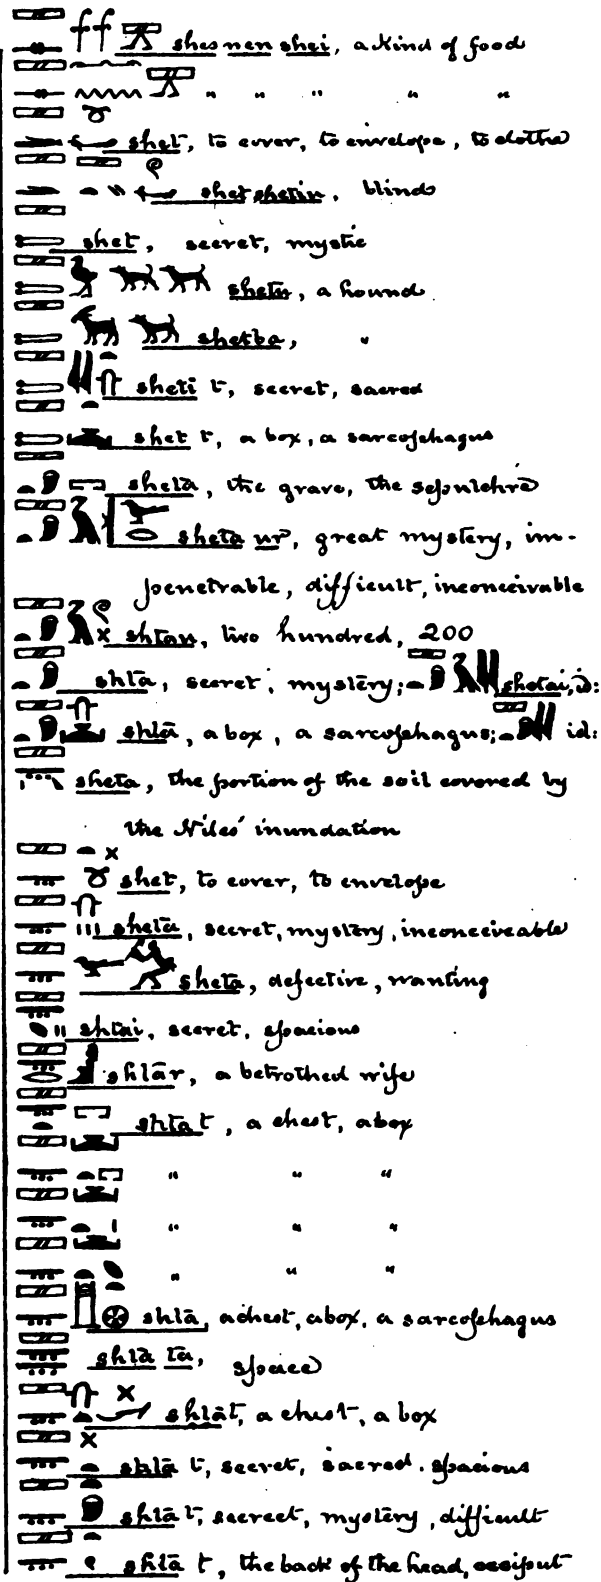 shes nen shei, a kind of food
" " " " "
shet, to cover, to envelope, to clothe
shet shetiu, blind
shet, secret, mystic
shetu, a hound
shetba, "
sheti t, secret, sacred
shet t, a box, a sarcophagus
sheta, the grave, the sepulchre
sheta ur, great mystery, im-
penetrable, difficult, inconceivable
shtau, two hundred, 200
shtā, secret, mystery; shetai, id:
shtā, a box, a sarcophagus; id:
sheta, the portion of the soil covered by
the Niles' inundation
shet, to cover, to envelope
shetā, secret, mystery, inconceiveable
sheta, defective, wanting
shtai, secret, spacious
shtār, a betrothed wife
shta t, a chest, a box
" " "
" " "
" " "
shtā, a chest, a box, a sarcophagus
shtā ta, space
shtāt, a chest, a box
shtā t, secret, sacred. spacious
shtā t, secreet, mystery, difficult
shtā t, the back of the head, occiput